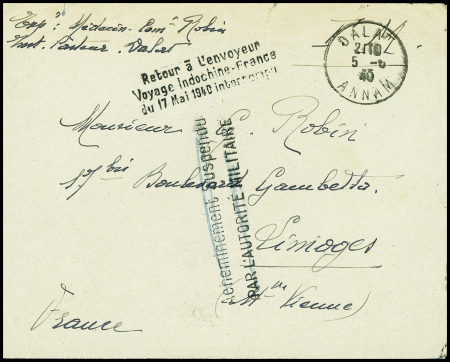 Exp. : Médecin-Comt Robin
Inst. Pasteur, Dalat
F.M.
DALAT
21 10
5 -6
40
ANNAM
Retour à l'envoyeur
Voyage Indochine-France
du 17 Mai 1940 interrompu
Monsieur G. Robin
17 bis Boulevard Gambetta.
Limoges
(Hte Vienne)
France
Acheminement suspendu
PAR L'AUTORITÉ MILITAIRE